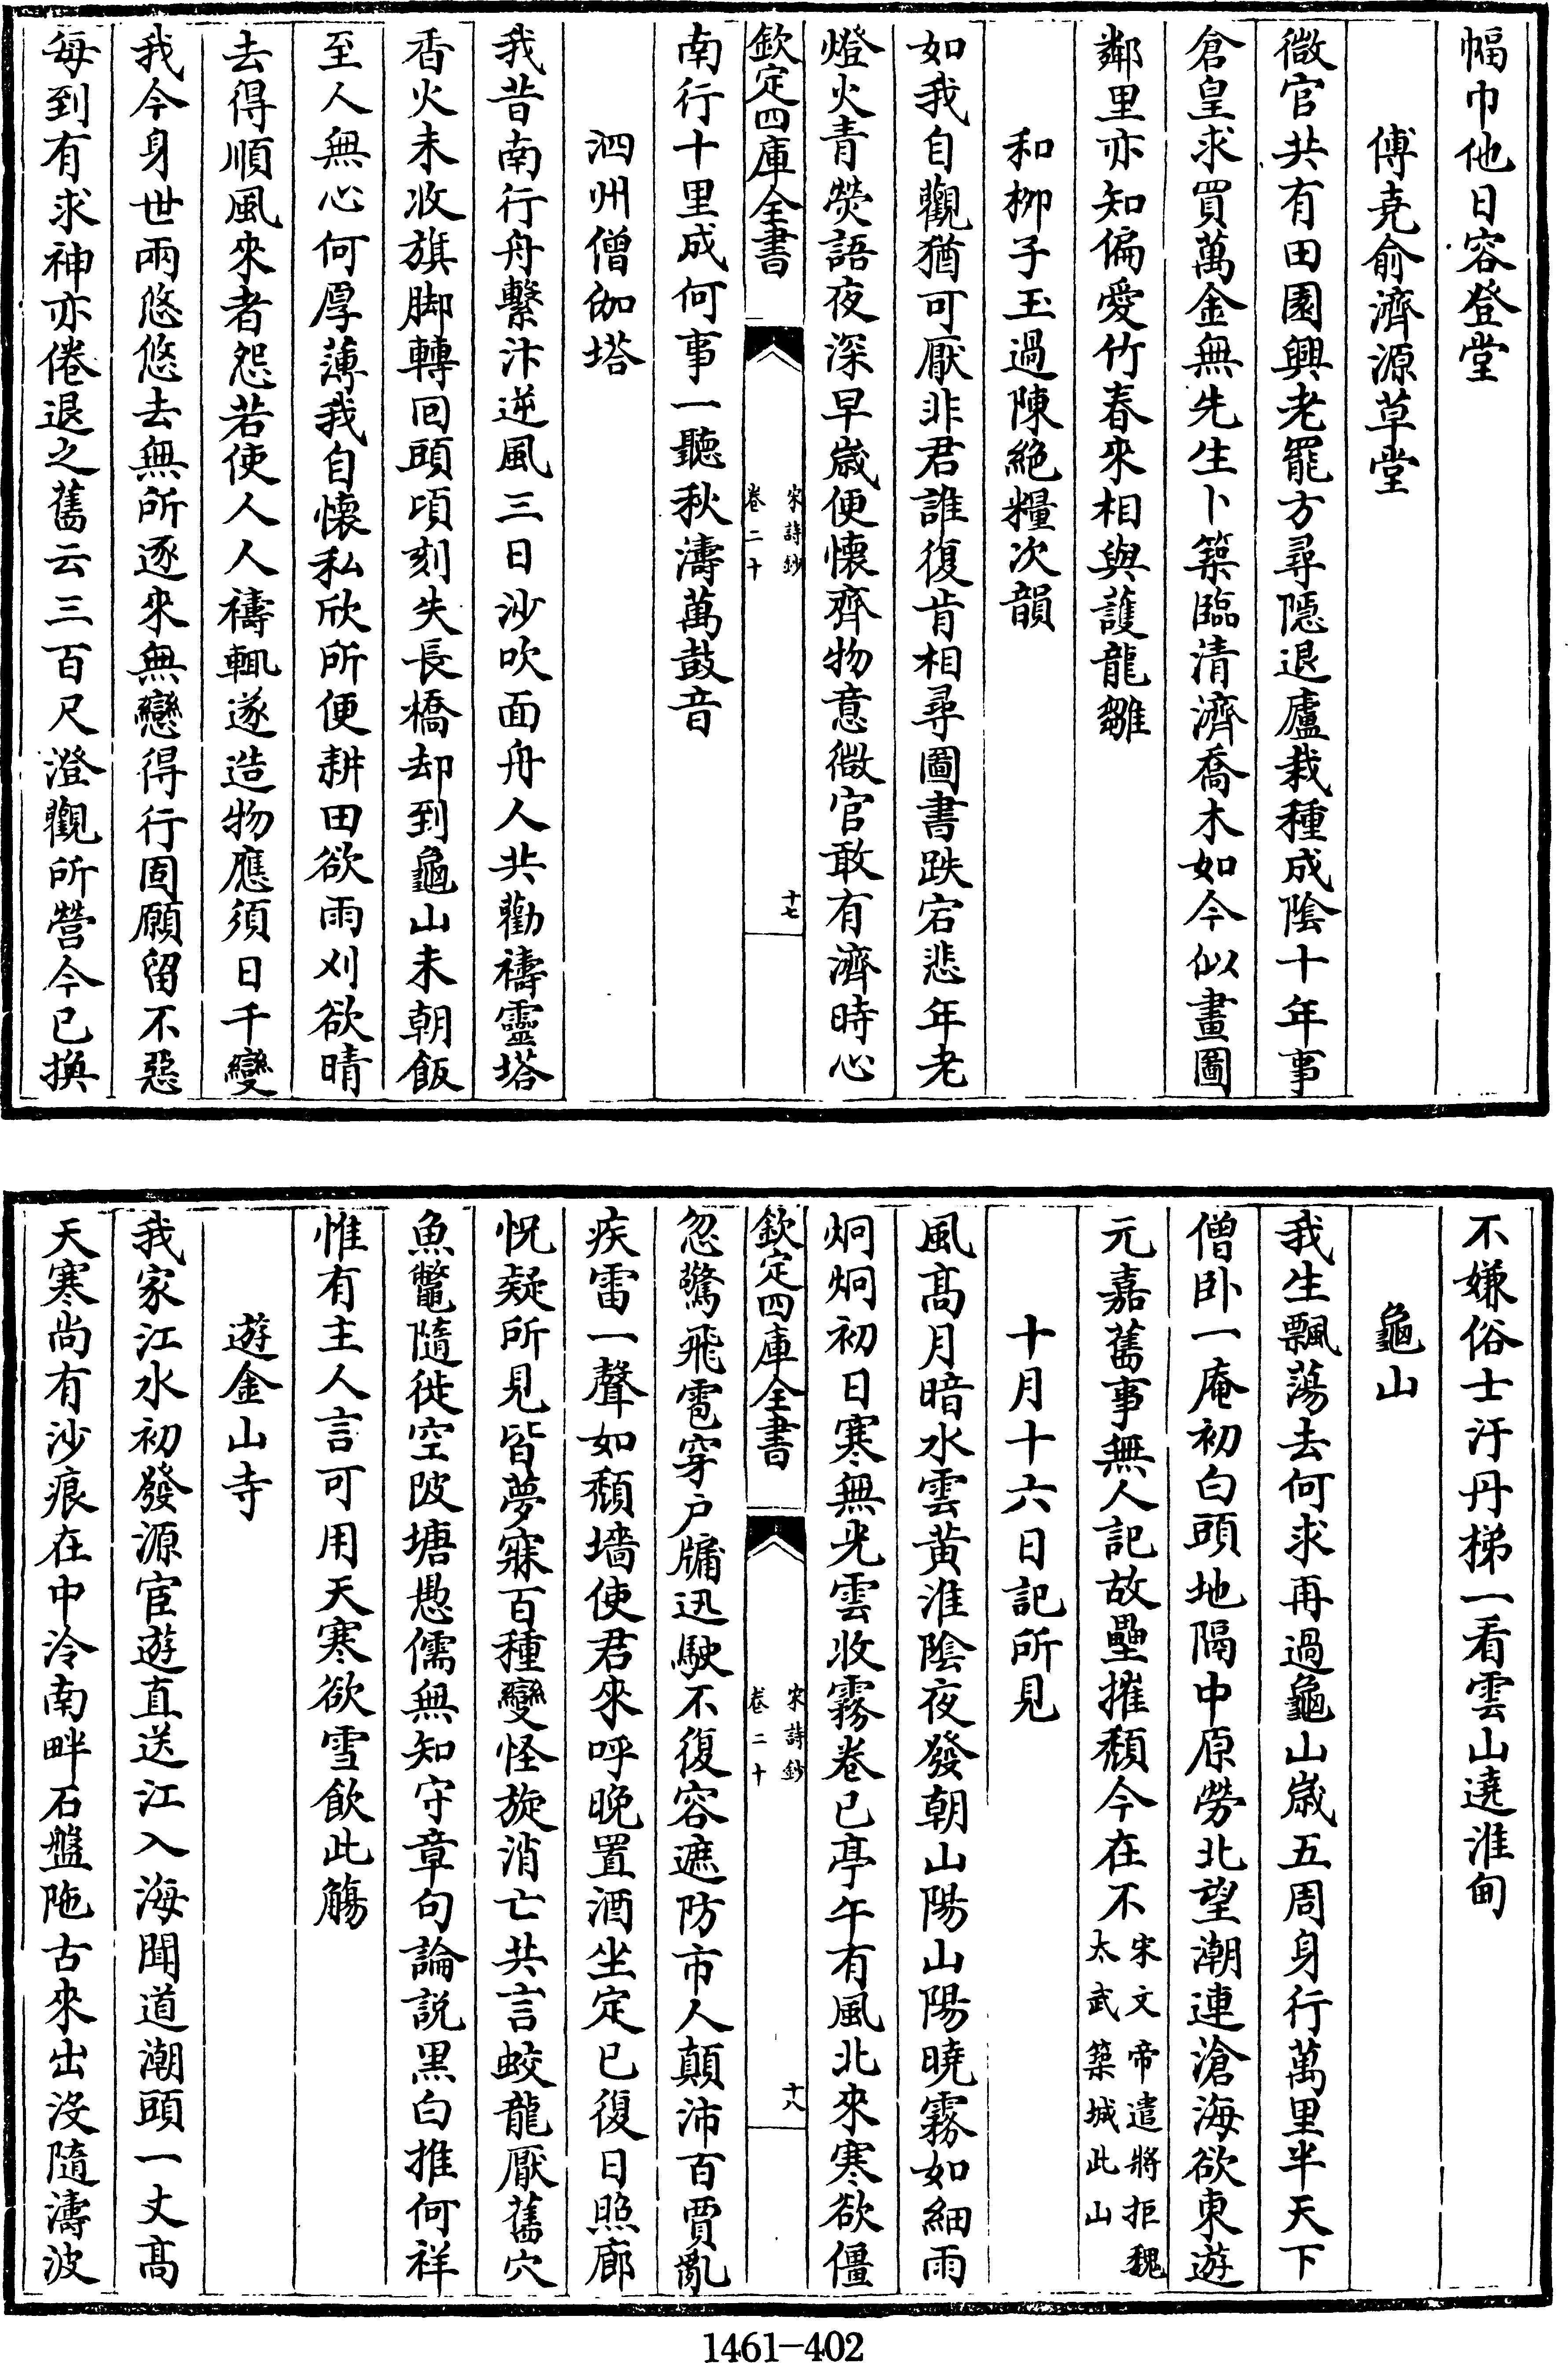 幅巾他日容登堂
傅堯俞濟源草堂
微官共有田園興老罷方尋隱退廬栽種成隂十年事
倉皇求買萬金無先生卜築臨清濟喬木如今似畫圖
鄰里亦知偏愛竹春來相與護龍雛
和柳子玉過陳絶糧次韻
如我自觀猶可厭非君誰復肯相尋圖書跌宕悲年老
燈火青熒語夜深早嵗便懷齊物意微官敢有濟時心
欽定四庫全書
宋詩鈔
卷二十
十七
南行十里成何事一聽秋濤萬鼓音
泗州僧伽塔
我昔南行舟繫汴逆風三日沙吹面舟人共勸禱靈塔
香火未收旗脚轉回頭頃刻失長橋却到龜山未朝飯
至人無心何厚薄我自懷私欣所便耕田欲雨刈欲晴
去得順風來者怨若使人人禱輒遂造物應須日千變
我今身世兩悠悠去無所逐來無戀得行固願留不惡
每到有求神亦倦退之舊云三百尺澄觀所營今已換
不嫌俗士汙丹梯一看雲山遶淮甸
龜山
我生飄蕩去何求再過龜山嵗五周身行萬里半天下
僧卧一庵初白頭地隔中原勞北望潮連滄海欲東遊
元嘉舊事無人記故壘摧頽今在不宋文帝遣將拒魏太武築城此山
十月十六日記所見
風髙月暗水雲黄淮隂夜發朝山陽山陽曉霧如細雨
炯炯初日寒無光雲收霧卷已亭午有風北來寒欲僵
欽定四庫全書
宋詩鈔
卷二十
十八
忽驚飛雹穿户牖迅駛不復容遮防市人顛沛百賈亂
疾雷一聲如頽墻使君來呼晚置酒坐定已復日照廊
怳疑所見皆夢寐百種變怪旋消亡共言蛟龍厭舊穴
魚鼈隨徙空陂塘愚儒無知守章句論説黒白推何祥
惟有主人言可用天寒欲雪飲此觴
遊金山寺
我家江水初發源宦遊直送江入海聞道潮頭一丈髙
天寒尚有沙痕在中泠南畔石盤陁古來出没隨濤波
1461-402